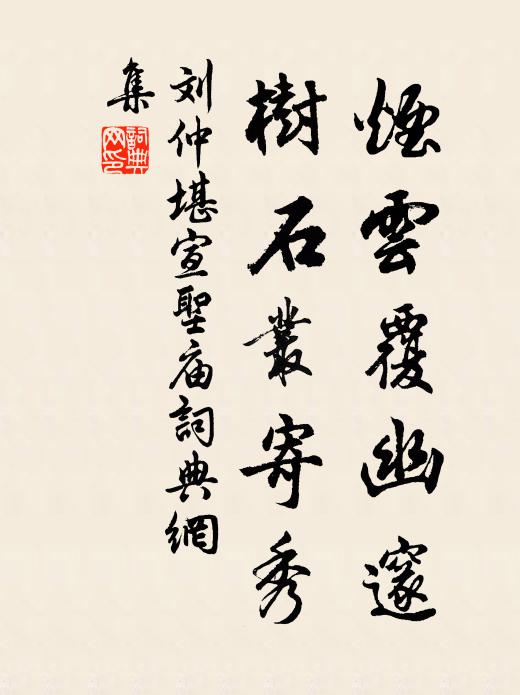 煙雲覆幽邃
樹石叢寄秀
刘仲堪宣聖庙詞典網
集
詞典網印